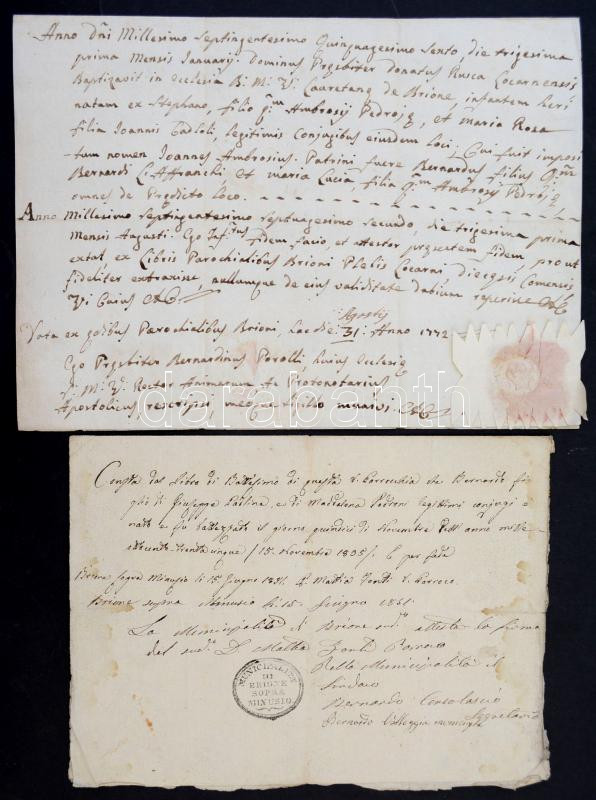 Anno Dñi Millesimo Septingentesimo Quinquagesimo Sexto, die trigesima
prima Mensis Januarij. Dominus Presbiter Donatus Rusca Locarnensis
Baptizavit in Ecclesia B. M. V. Lauretanę de Brione, infantem heri
natam ex Stephano, filio qm Ambrosij Pedroję, et Maria Rosa
filia Joannis legitimis Conjugibus eiusdem loci; Cui fuit imposi
tum nomen Joannes Ambrosius. Patrini fuere Bernardus filius qm
Bernardi et Maria Lucia filia qm Ambrosij Pedroję
omnes de Prędicto Loco.
Anno Millesimo Septingentesimo Septuagesimo Secundo, die trigesima prima
Mensis Augusti. Ego fidem facio, et attestor pręsentem fidem, prout
extat ex Libris Parochialibus Brioni Plebis Locarni, Diecęsis Comensis
fideliter extraxisse, nullumque de eius validitate dubium reperire
Augusti
ex ędibus Parochialibus Brioni, hac die 31. Anno 1772
Ego Pręsbiter Bernardinus huius Ecclesię
B. M. V. Rector Animarum Ac Protonotarius
Apostolicus, rescripsi, meoque sigillo munivi.
darabanth
Consta dal Libro di Battesimo di questa V. Parrocchia che Bernardo fi
glio di Giuseppe e di Maddalena Pedroni legittimi conjugi è
nato e fù battezzato il giorno quindici di Novembre dell' anno mille
ottocento trentacinque /15. Novembre 1835/. E per fede
Brione sopra Minusio li 15 Giugno P. Mattia V. Parroco
Brione sopra Minusio li 15 Giugno 1861.
La Municipalità di Brione sud.o attesta la firma
del sud.o D. Mattia Parroco
Della Municipalità il
Sindaco
Bernardo
Bernardo Segretario
MUNICIPALITÀ
DI
BRIONE
SOPRA
MINUSIO